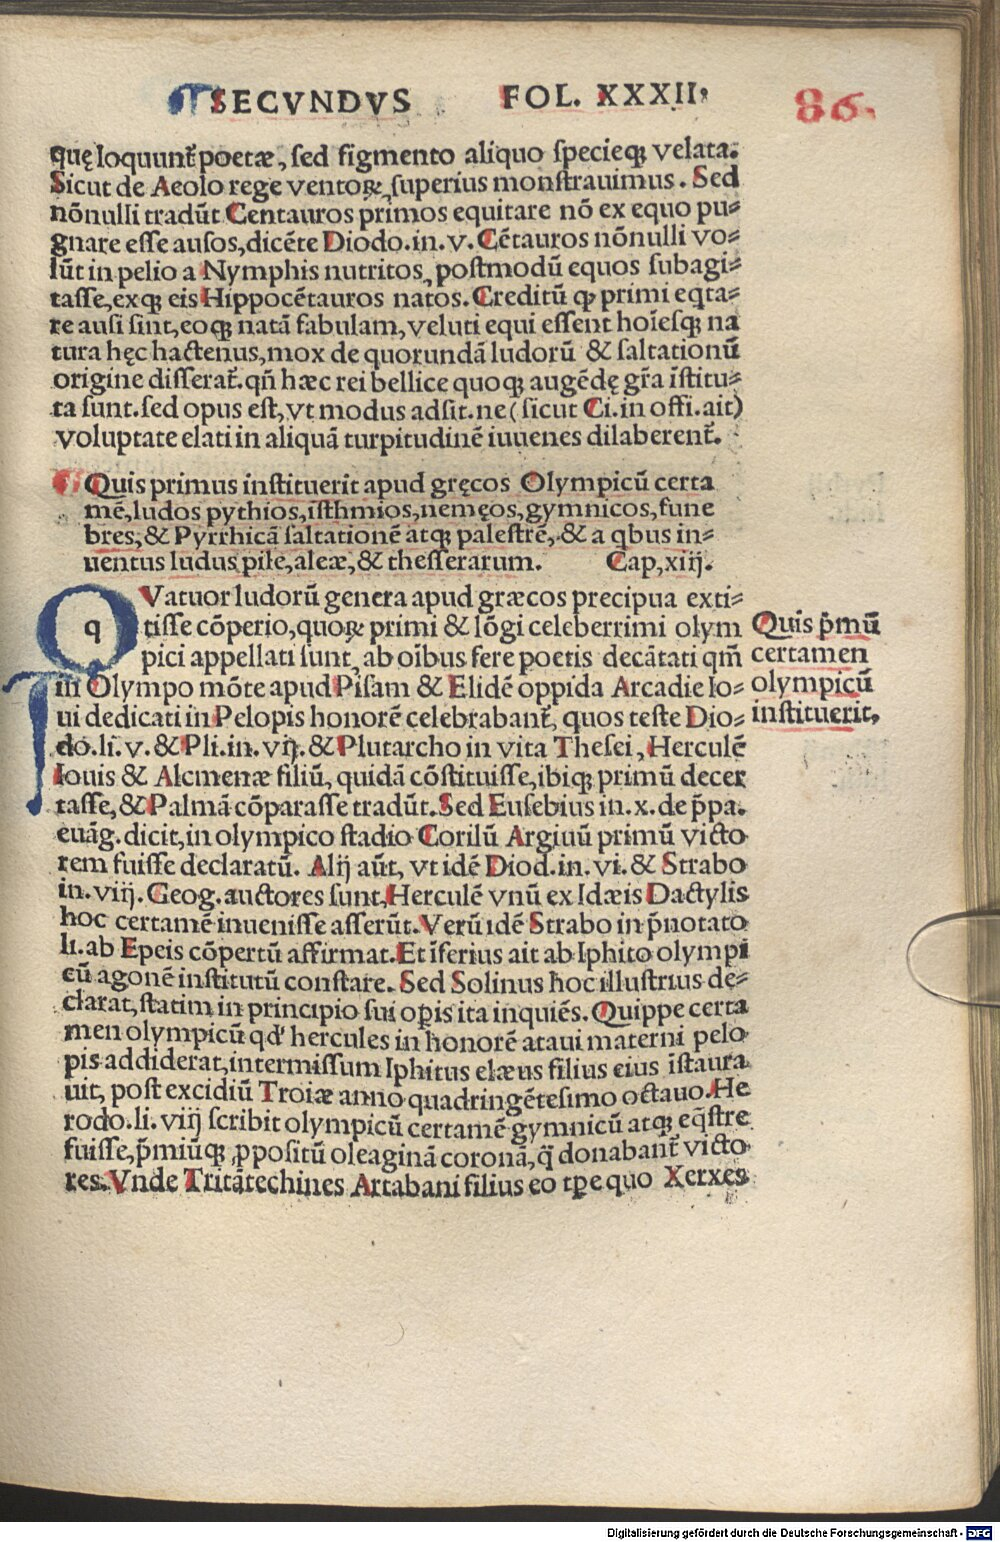 SECVNDVS FOL. XXXII,
86.
quę loquunt᷑ poetæ, sed figmento aliquo specieqꝫ velata.
Sicut de Aeolo rege ventoꝝ superius monstrauimus. Sed
nõnulli tradũt Centauros primos equitare nõ ex equo pu-
gnare esse ausos, dicẽte Diodo. in. v. Cẽtauros nõnulli vo-
lũt in pelio a Nymphis nutritos, postmodũ equos subagi-
tasse, exqꝫ eis Hippocẽtauros natos. Creditũ ꝙ primi eqta-
re ausi sint, eoqꝫ natã fabulam, veluti equi essent hoĩesqꝫ na
tura hęc hactenus, mox de quorundã ludorũ & saltationũ
origine disserat᷑. qñ hæc rei bellice quoqꝫ augẽdę gr̃a ĩstitu-
ta sunt. sed opus est, vt modus adsit. ne (sicut Ci. in offi. ait)
voluptate elati in aliquã turpitudinẽ iuuenes dilaberent᷑.
¶ Quis primus instituerit apud gręcos Olympicũ certa
mẽ, ludos pythios, isthmios, nemęos, gymnicos, fune
bres, & Pyrrhicã saltationẽ atqꝫ palestrẽ, & a qbus in-
uentus ludus pile, aleæ, & thesserarum. Cap, xiij.
q
QVatuor ludorũ genera apud græcos precipua exti-
tisse cõperio, quoꝝ primi & lõgi celeberrimi olym
pici appellati sunt, ab oĩbus fere poetis decãtati qm̃
in Olympo mõte apud Pisam & Elidẽ oppida Arcadie Io-
ui dedicati in Pelopis honorẽ celebrabant᷑, quos teste Dio-
do. li. v. & Pli. in. vij. & Plutarcho in vita Thesei, Herculẽ
Iouis & Alcmenæ filiũ, quidã cõstituisse, ibiqꝫ primũ decer
tasse, & Palmã cõparasse tradũt. Sed Eusebius in. x. de p̃pa.
euãg. dicit, in olympico stadio Corilũ Argiuũ primũ victo
rem fuisse declaratũ. Alij aũt, vt idẽ Diod. in. vi. & Strabo
in. viij. Geog. auctores sunt, Herculẽ vnũ ex Idæis Dactylis
hoc certamẽ inuenisse asserũt. Verũ idẽ Strabo in p̃notato
li. ab Epeis cõpertũ affirmat. Et ĩferius ait ab Iphito olympi
cũ agonẽ institutũ constare. Sed Solinus hoc illustrius dę-
clarat, statim in principio sui oꝑis ita inquiẽs. Quippe certa
men olympicũ qd' hercules in honorẽ ataui materni pelo
pis addiderat, intermissum Iphitus elæus filius eius ĩstaura
uit, post excidiũ Troiæ anno quadringẽtesimo octauo. He
rodo. li. viij scribit olympicũ certamẽ gymnicũ atqꝫ eq̃stre
fuisse, p̃miũqꝫ ꝓpositũ oleaginã coronã, q̃ donabant᷑ victo
res. Vnde Tritãtechines Artabani filius eo tꝑe quo Xerxes
Quis p̃mũ
certamen
olympicũ
instituerit,
Digitalisierung gefördert durch die Deutsche Forschungsgemeinschaft - DFG